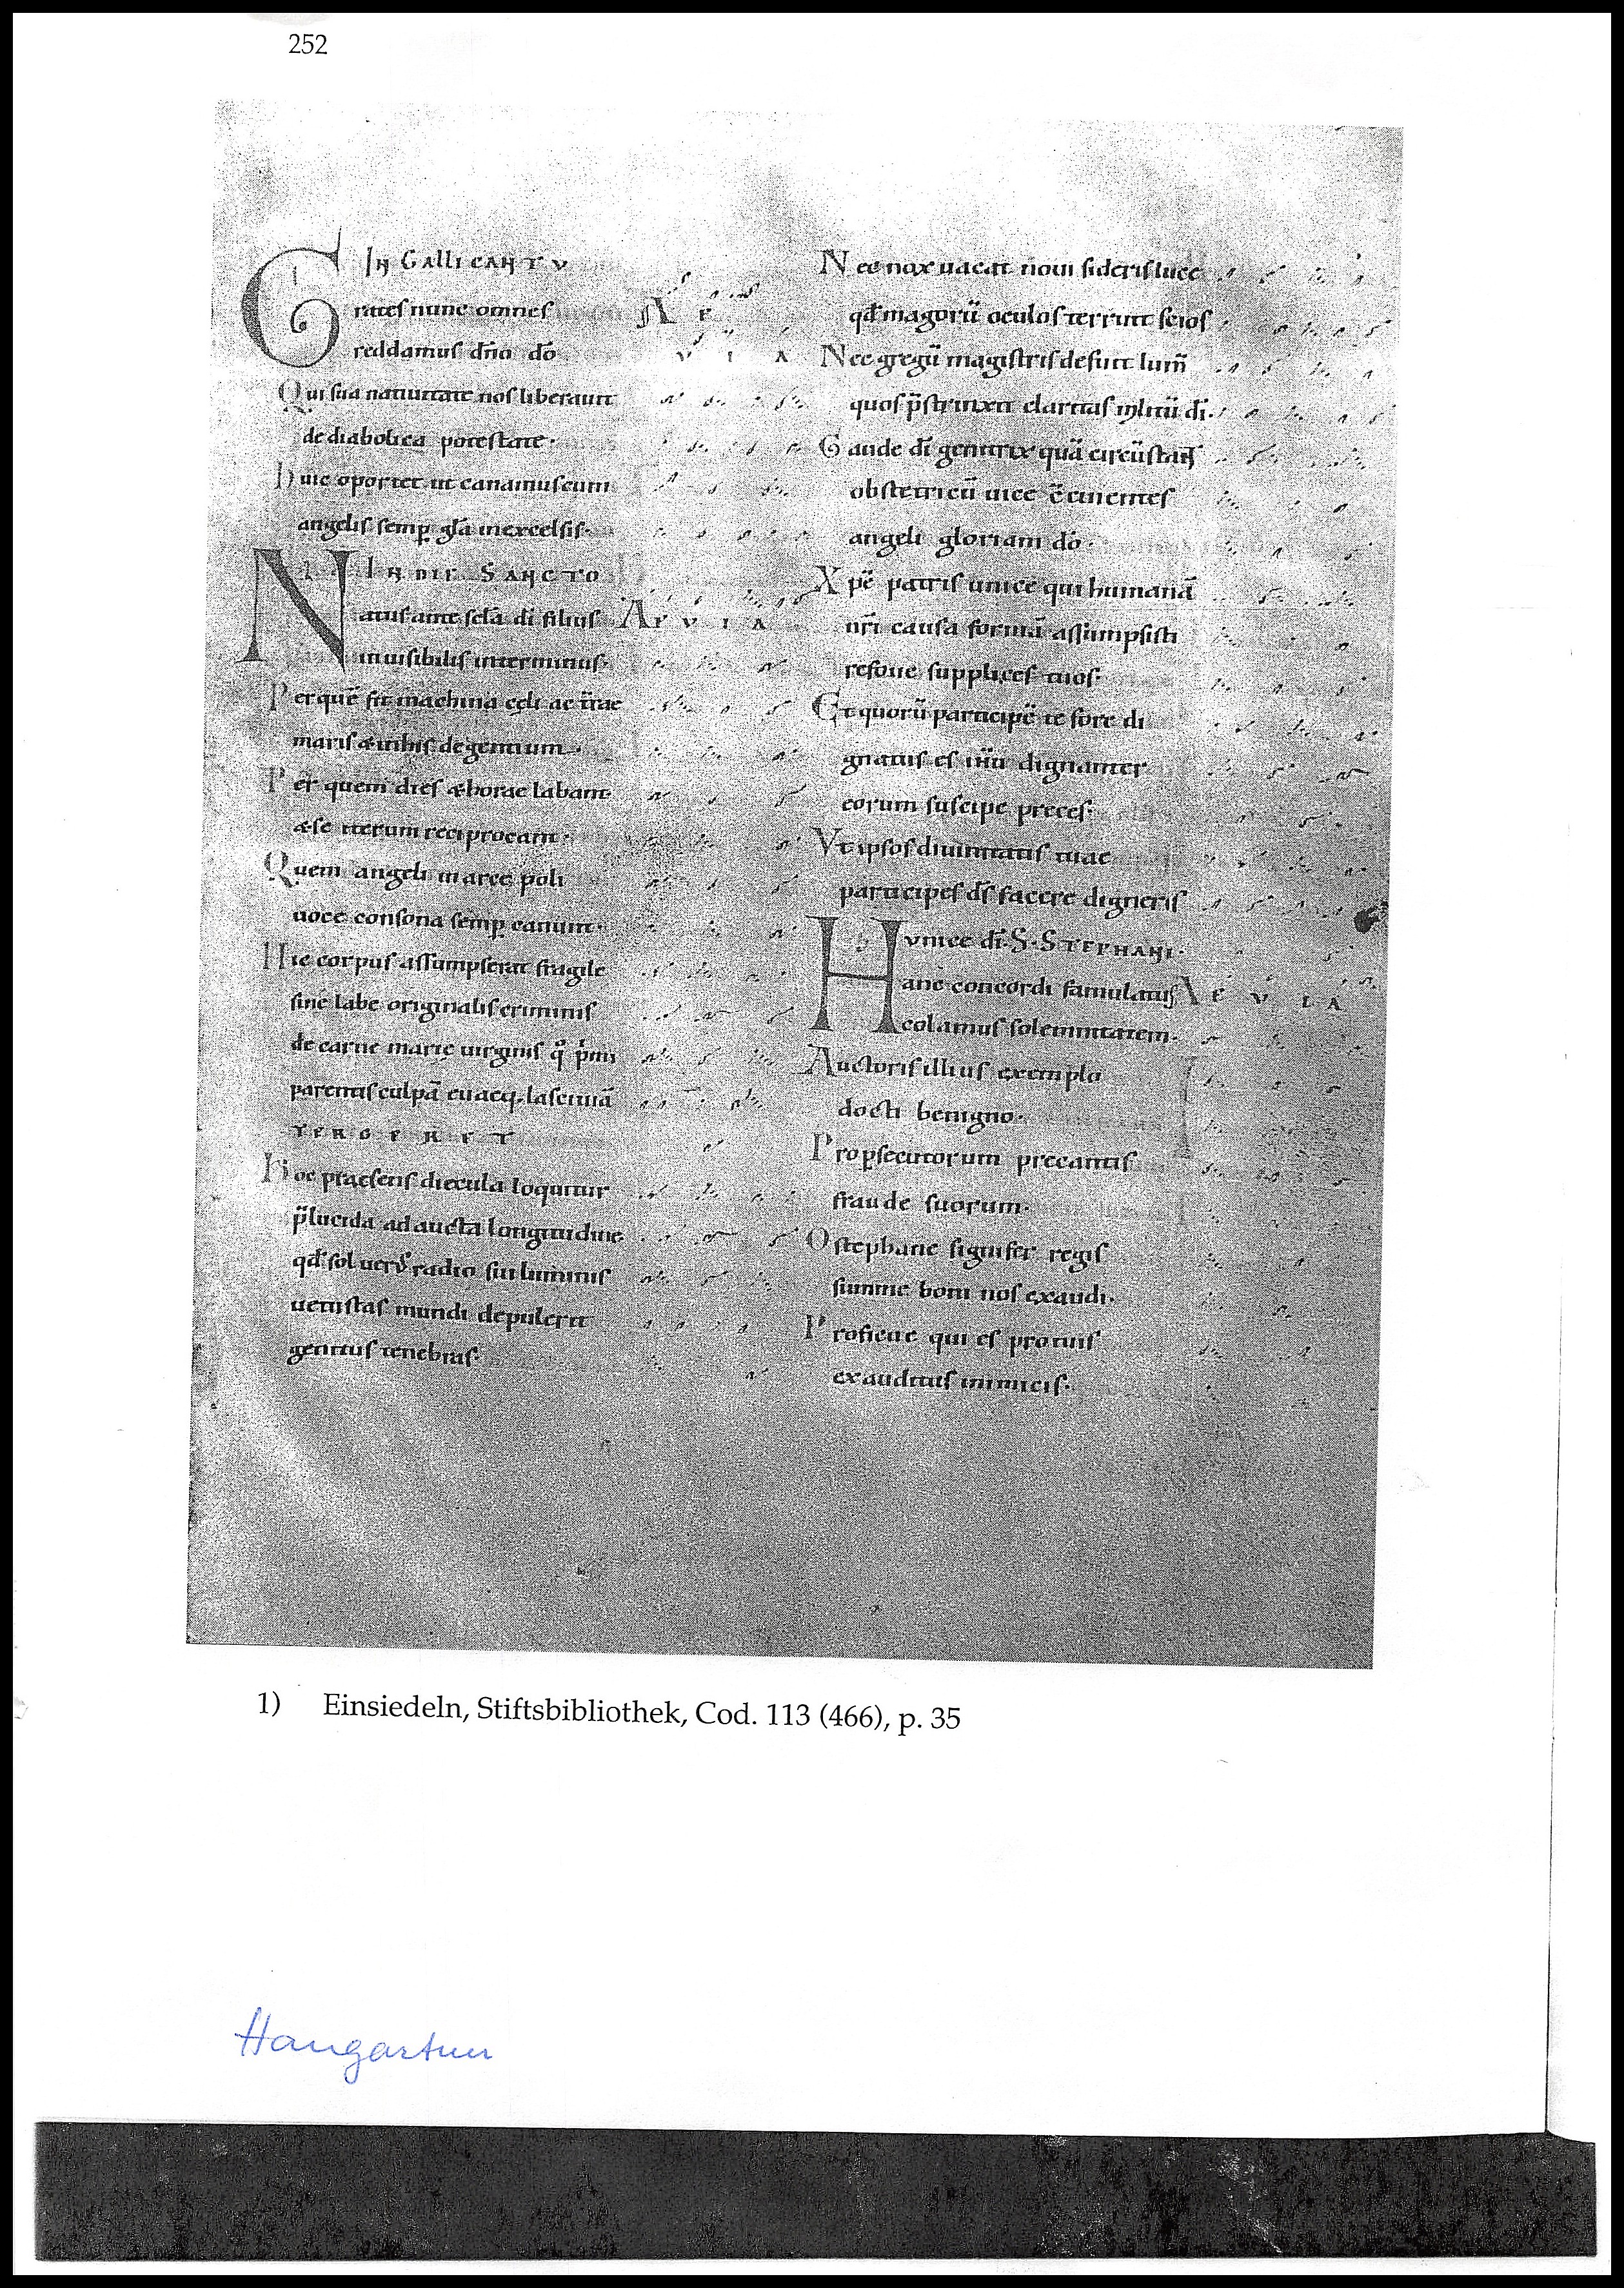 252
IN GALLICANTV
Grates nunc omnes AE
reddamus dn̄o dō VIA
Qui sua natiuitate nos liberauit
de diabolica potestate·
Huic oportet ut canamus cum
angelis semp̲ gl̄a in excelsis·
IN DIE SANCTO
Natus ante sc̄la dī filius AEVIA
inuisibilis interminus·
Per quē fit machina cęli ac t̄rae
maris & in his degentium·
Per quem dies & horae labant
& se iterum reciprocant·
Quem angeli in arce poli
uoce consona semp̲ canunt·
Hic corpus assumpserat fragile
sine labe originalis criminis
de carne marię uirginis q̄ p̄mi
parentis culpā euaeq; lasciuiā
TERGERET
Hoc praesens diecula loquitur
p̄lucida adaucta longitudine
qd̄ sol uerus radio sui luminis
uetustas mundi depulerit
genitus tenebras·
Nec nox uacat noui sideris luce
qd̄ magorū oculos terruit scios
Nec gregū magistris defuit lum̄
quos p̄strinxit claritas militū dī·
Gaude dī genitrix quā circūstant
obstetricū uice c̄cinentes
angeli gloriam dō·
Xp̄e patris unice qui humanā
nr̄i causa formā assumpsisti
refoue supplices tuos·
Et quorū participē te fore di
gnatus es ih̄u dignanter
eorum suscipe preces·
Vt ipsos diuinitatis tuae
participes ds̄ facere digneris
vnice dī· S· STEPHANI·
Hanc concordi famulatu AEVIA
colamus solemnitatem·
Auctoris illius exemplo
docti benigno·
Pro p̲secutorum precantis
fraude suorum·
O stephane signifer regis
summe boni nos exaudi·
Proficue qui es pro tuis
exauditus inimicis·
1) Einsiedeln, Stiftsbibliothek, Cod. 113 (466), p. 35